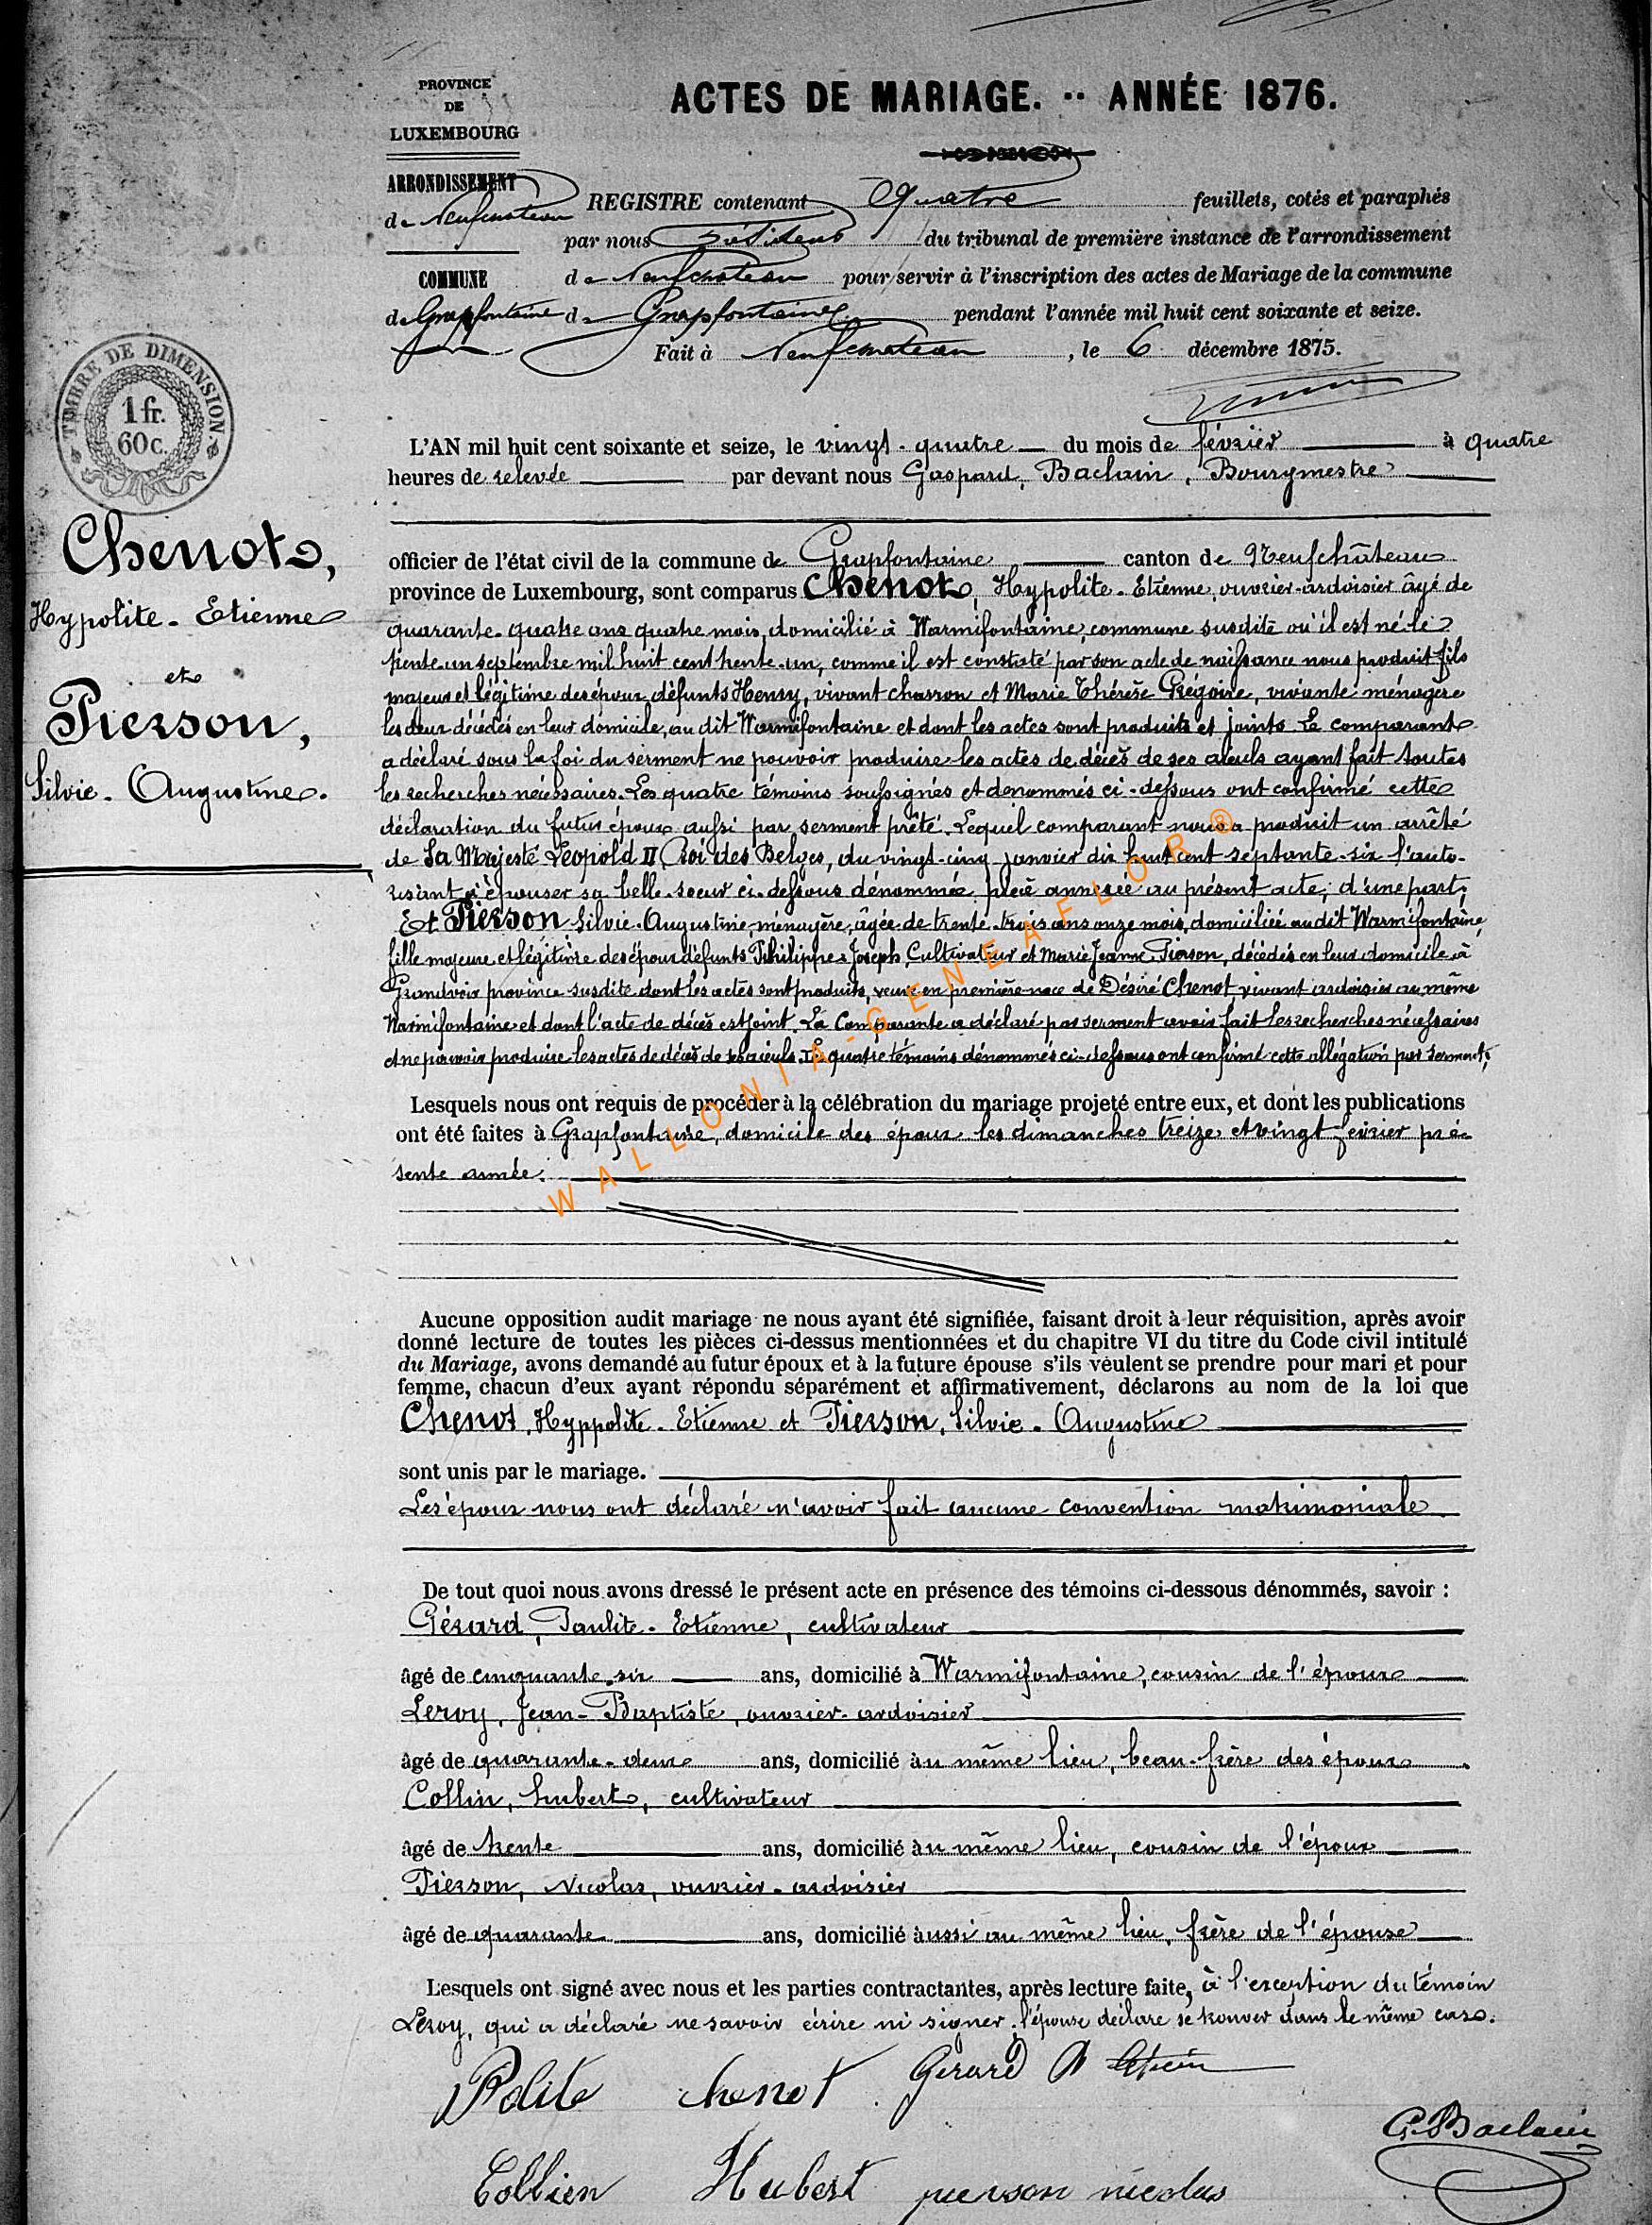 PROVINCE
DE
LUXEMBOURG
ACTES DE MARIAGE. -- ANNÉE 1876.
ARRONDISSEMENT
de Neufchateau
REGISTRE contenant quatre feuillets, cotés et paraphés
par nous du tribunal de première instance de l'arrondissement
COMMUNE
de Neufchateau pour servir à l'inscription des actes de Mariage de la commune
de Grapfontaine
de Grapfontaine pendant l'année mil huit cent soixante et seize.
Fait à Neufchateau, le 6 décembre 1875.
TIMBRE DE DIMENSION
1 fr.
60 c.
L'AN mil huit cent soixante et seize, le vingt-quatre du mois de février à quatre
heures de relevée par devant nous Gaspard, Baclain, Bourgmestre
officier de l'état civil de la commune de Grapfontaine canton de Neufchâteau
Chenot,
Hypolite-Etienne
et
Pierson,
Silvie-Augustine.
province de Luxembourg, sont comparus Chenot, Hypolite-Etienne, ouvrier-ardoisier âgé de
quarante-quatre ans quatre mois, domicilié à Warmifontaine, commune susdite où il est né le
trente un septembre mil huit cent trente-un, comme il est constaté par son acte de naissance nous produit fils
majeur et légitime des époux défunts Henry, vivant charron et Marie Thérèse Grégoire, vivante ménagère
les deux décédés en leur domicile, au dit Warmifontaine et dont les actes sont produits et joints. Le comparant
a déclaré sous la foi du serment ne pouvoir produire les actes de décès de ses aïeuls ayant fait toutes
les recherches nécessaires. Les quatre témoins soussignés et dénommés ci-dessous ont confirmé cette
déclaration du futur époux aussi par serment prêté. Lequel comparant nous a produit un arrêté
de Sa Majesté Léopold II, Roi des Belges, du vingt-cinq janvier dix huit cent septante-six l'auto-
risant à épouser sa belle-soeur ci-dessous dénommée, pièce annexée au présent acte, d'une part,
Et Pierson Silvie-Augustine, ménagère, âgée de trente-trois ans onze mois, domiciliée au dit Warmifontaine,
fille majeure et légitime des époux défunts Philippe Joseph, Cultivateur et Marie Jeanne Pierson, décédés en leur domicile à
Grandvoir province susdite dont les actes sont produits, veuve en première noce de Désiré Chenot, vivant ardoisier au même
Warmifontaine et dont l'acte de décès est joint. La Comparante a déclaré par serment avoir fait les recherches nécessaires
et ne pouvoir produire les actes de décès de ses aïeuls. Les quatre témoins dénommés ci-dessous ont confirmé cette allégation par serment,
Lesquels nous ont requis de procéder à la célébration du mariage projeté entre eux, et dont les publications
ont été faites à Grapfontaine, domicile des époux les dimanches treize et vingt février pré-
sente année.
WALLONIA-GENEAFLOR®
Aucune opposition audit mariage ne nous ayant été signifiée, faisant droit à leur réquisition, après avoir
donné lecture de toutes les pièces ci-dessus mentionnées et du chapitre VI du titre du Code civil intitulé
du Mariage, avons demandé au futur époux et à la future épouse s'ils veulent se prendre pour mari et pour
femme, chacun d'eux ayant répondu séparément et affirmativement, déclarons au nom de la loi que
Chenot, Hyppolite-Etienne et Pierson, Silvie-Augustine
sont unis par le mariage.
Les époux nous ont déclaré n'avoir fait aucune convention matrimoniale
De tout quoi nous avons dressé le présent acte en présence des témoins ci-dessous dénommés, savoir :
Gérard, Paulite-Etienne, cultivateur
âgé de cinquante-six ans, domicilié à Warmifontaine, cousin de l'époux
Leroy, Jean-Baptiste, ouvrier-ardoisier
âgé de quarante-deux ans, domicilié au même lieu, beau-frère des époux
Collin, Hubert, cultivateur
âgé de trente ans, domicilié au même lieu, cousin de l'époux
Pierson, Nicolas, ouvrier-ardoisier
âgé de quarante ans, domicilié aussi au même lieu, frère de l'épouse
Lesquels ont signé avec nous et les parties contractantes, après lecture faite, à l'exception du témoin
Leroy, qui a déclaré ne savoir écrire ni signer, l'épouse déclare se trouver dans le même cas.
Polite chenot Gerard
G. Baclain
Collien Hubert pierson nicolas